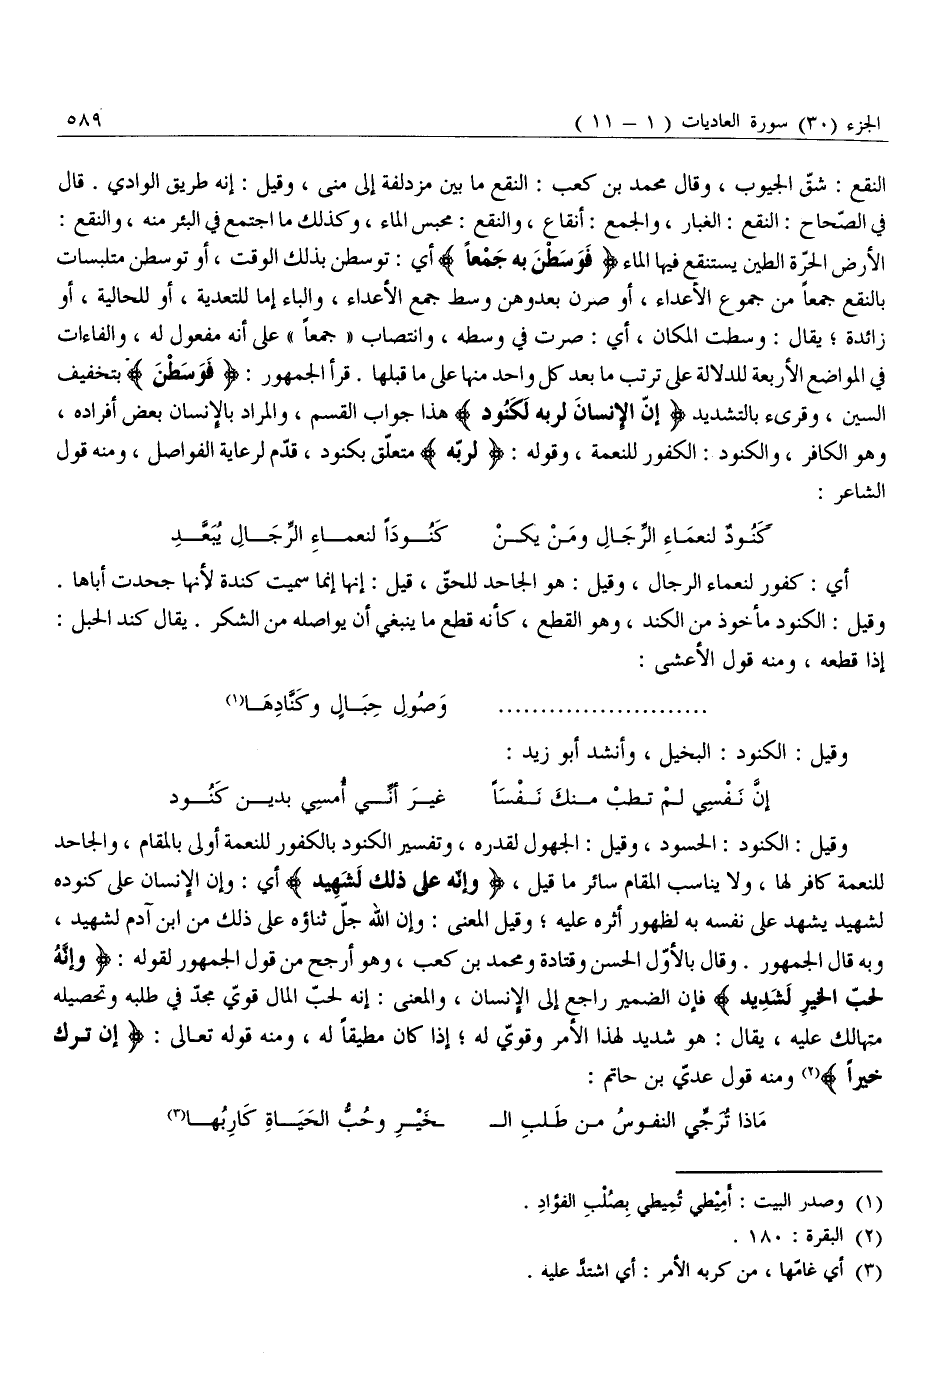 الجزء (٣٠) سورة العاديات ( ١ - ١١ ) ٥٨٩
النقع : شقّ الجيوب ، وقال محمد بن كعب : النقع ما بين مزدلفة إلى منى ، وقيل : إنه طريق الوادي . قال
في الصّحاح : النقع : الغبار ، والجمع : أنقاع ، والنقع : محبس الماء ، وكذلك ما اجتمع في البئر منه ، والنقع :
الأرض الحرّة الطين يستنقع فيها الماء ﴿ فَوَسَطْنَ به جَمْعاً ﴾ أي : توسطن بذلك الوقت ، أو توسطن متلبسات
بالنقع جمعاً من جموع الأعداء ، أو صرن بعدوهن وسط جمع الأعداء ، والباء إما للتعدية ، أو للحالية ، أو
زائدة ؛ يقال : وسطت المكان ، أي : صرت في وسطه ، وانتصاب « جمعاً » على أنه مفعول له ، والفاءات
في المواضع الأربعة للدلالة على ترتب ما بعد كل واحد منها على ما قبلها . قرأ الجمهور : ﴿ فَوَسَطْنَ ﴾ بتخفيف
السين ، وقرىء بالتشديد ﴿ إنّ الإنسانَ لربه لَكَنُود ﴾ هذا جواب القسم ، والمراد بالإنسان بعض أفراده ،
وهو الكافر ، والكنود : الكفور للنعمة ، وقوله : ﴿ لربّه ﴾ متعلّق بكنود ، قدّم لرعاية الفواصل ، ومنه قول
الشاعر :
كَنُودٌ لنعمَاءِ الرِّجَالِ ومَنْ يكنْ كَنُوداً لنعماءِ الرِّجَالِ يُبَعَّدِ
أي : كفور لنعماء الرجال ، وقيل : هو الجاحد للحقّ ، قيل : إنها إنما سميت كندة لأنها جحدت أباها .
وقيل : الكنود مأخوذ من الكند ، وهو القطع ، كأنه قطع ما ينبغي أن يواصله من الشكر . يقال كند الحبل :
إذا قطعه ، ومنه قول الأعشى :
......................... وَصُولِ حِبَالٍ وكَنَّادِهَا(١)
وقيل : الكنود : البخيل ، وأنشد أبو زيد :
إنَّ نَفْسِي لمْ تطبْ منكَ نَفْسَاً غيرَ أنِّي أُمسِي بدينِ كَنُود
وقيل : الكنود : الحسود ، وقيل : الجهول لقدره ، وتفسير الكنود بالكفور للنعمة أولى بالمقام ، والجاحد
للنعمة كافر لها ، ولا يناسب المقام سائر ما قيل ، ﴿ وإنّه على ذلك لَشَهِيد ﴾ أي : وإن الإنسان على كنوده
لشهيد يشهد على نفسه به لظهور أثره عليه ؛ وقيل المعنى : وإن الله جلّ ثناؤه على ذلك من ابن آدم لشهيد ،
وبه قال الجمهور . وقال بالأوّل الحسن وقتادة ومحمد بن كعب ، وهو أرجح من قول الجمهور لقوله : ﴿ وإنَّهُ
لحبّ الخيرِ لَشَدِيد ﴾ فإن الضمير راجع إلى الإنسان ، والمعنى : إنه لحبّ المال قويّ مجدّ في طلبه وتحصيله
متهالك عليه ، يقال : هو شديد لهذا الأمر وقويّ له ؛ إذا كان مطيقاً له ، ومنه قوله تعالى : ﴿ إن ترك
خيراً ﴾(٢) ومنه قول عديّ بن حاتم :
مَاذا تُرَجِّي النفوسُ من طَلبِ الـ ـخَيْرِ وحُبُّ الحَيَاةِ كَارِبُها(٣)
(١) وصدر البيت : أَمِيْطي تُمِيطي بِصُلْبِ الفؤادِ .
(٢) البقرة : ١٨٠ .
(٣) أي غامّها ، من كربه الأمر : أي اشتدَّ عليه .